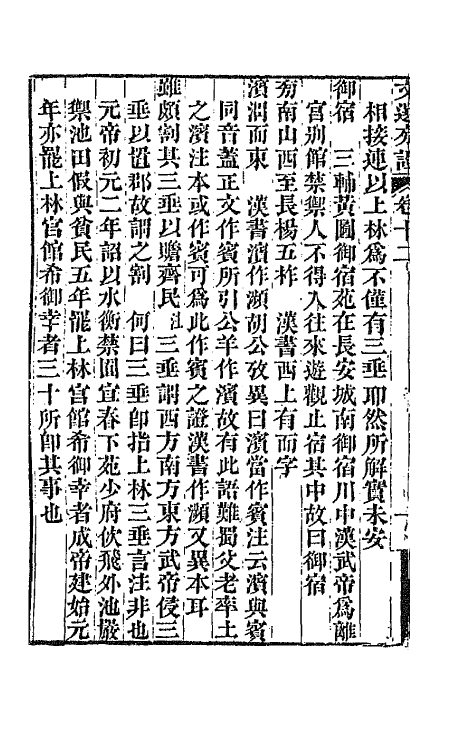 文選旁證 卷十二
相接連以上林爲不僅有三垂耶然所解實未安
御宿 三輔黃圖御宿苑在長安城南御宿川中漢武帝爲離
宮別館禁禦人不得入往來遊觀止宿其中故曰御宿
旁南山西至長楊五柞 漢書西上有而字
濱渭而東 漢書濱作瀕胡公攷異曰濱當作賓注云濱與賓
同音蓋正文作賓所引公羊作濱故有此語難蜀父老率土
之濱注本或作賓可爲此作賓之證漢書作瀕又異本耳
雖頗割其三垂以贍齊民注三垂謂西方南方東方武帝侵三
垂以置郡故謂之割 何曰三垂卽指上林三垂言注非也
元帝初元二年詔以水衡禁囿宜春下苑少府佽飛外池嚴
籞池田假與貧民五年罷上林宮館希御幸者成帝建始元
年亦罷上林宮館希御幸者三十所卽其事也